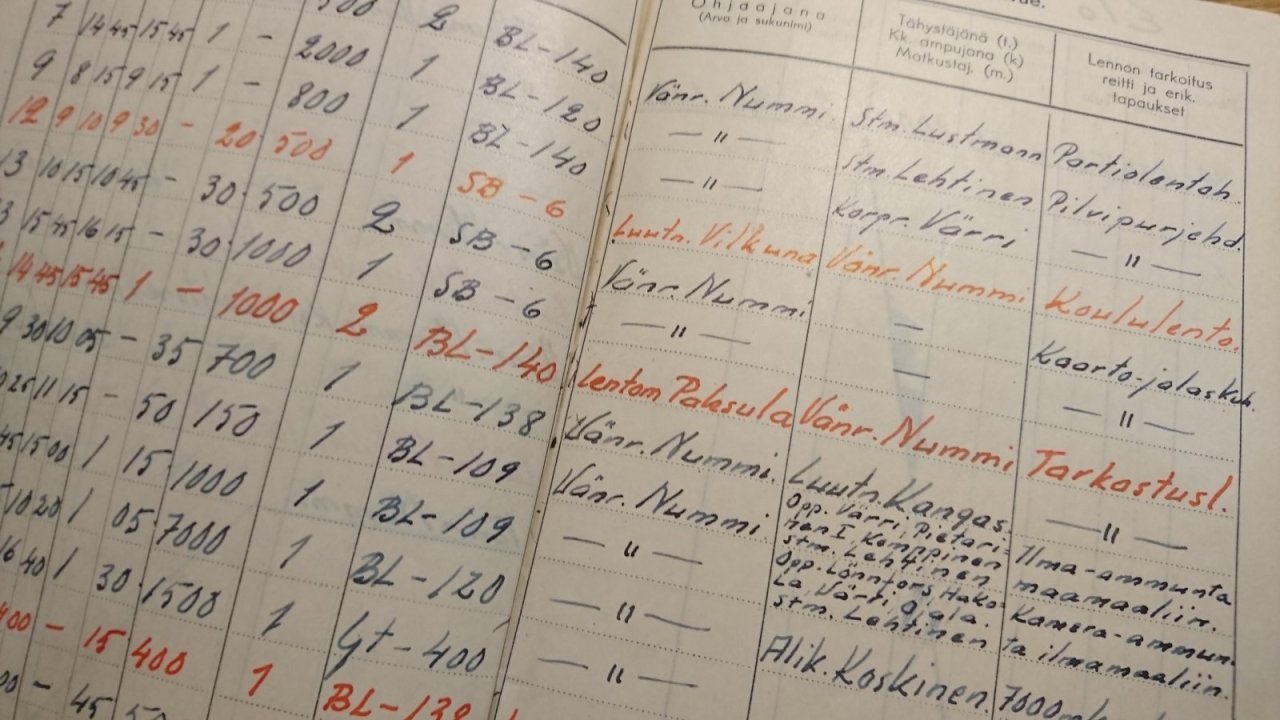 Ohjaajana
(Arvo ja sukunimi)
Tähystäjänä (t.)
Kk. ampujana (k)
Matkustaj. (m.)
Lennon tarkoitus
reitti ja erik.
tapaukset
2 BL-140
7 14 45 15 45 1 - 2000 1 BL-120
9 8 15 9 15 1 - 800 1 BL-140
12 9 10 9 30 - 20 500 1 SB-6
13 10 15 10 45 - 30 500 2 SB-6
15 45 16 15 - 30 1000 1 SB-6
14 45 15 45 1 - 1000 2 BL-140
9 30 10 05 - 35 700 1 BL-138
11 15 - 50 150 1 BL-109
15 00 1 15 1000 1 BL-109
10 20 1 05 7000 1 BL-120
16 40 1 30 1500 1 Gt-400
- 15 400 1 BL-138
- 45
Vänr. Nummi. Stm. Lustmann Partiolentoh.
— " — Stm. Lehtinen Pilvipurjehd.
— " — Korpr. Värri — " —
Luutn. Vilkuna Vänr. Nummi Koululento.
Vänr. Nummi — Kaarto-jalaskuh.
— " — — — " —
Lentom Paksula Vänr. Nummi Tarkastusl.
Vänr. Nummi. Luutn. Kangas. — " —
Vänr. Nummi Opp. Värri, Pietari-
nen I Komppinen Ilma-ammunta
— " — Stm. Lehtinen maamaaliin.
Opp. Lönnfors, Hako-
la, Värri, Ojala. Kamera-ammun-
— " — Stm. Lehtinen ta ilmamaaliin.
— " — Alik. Koskinen. 7000m